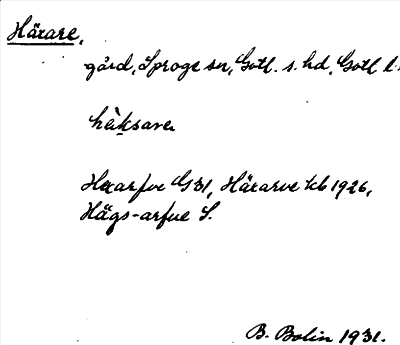 Häxare,
gård, Sproge sn, Gotl. s. hd, Gotl l.
häksave
Hexarfve G31, Häxarve kb 1926,
Hägs-arfve S.
B. Bolin 1931.